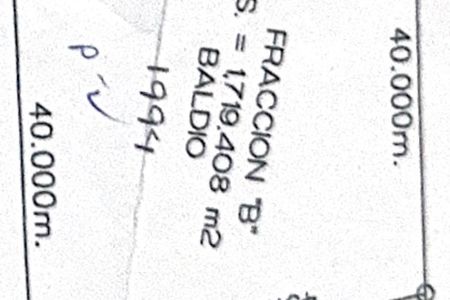 40.000m.
FRACCION "B"
S. = 1,719.408 m2
BALDIO
1994
40.000m.